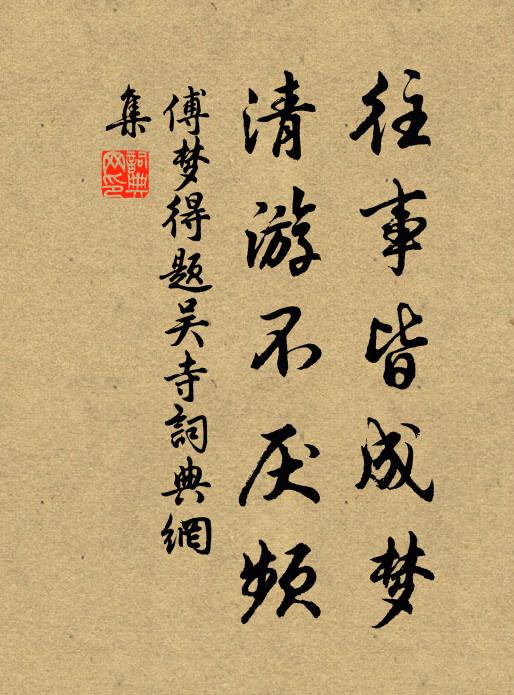 往事皆成梦
清游不厌频
傅梦得题吴寺詞典網
集
詞典网印